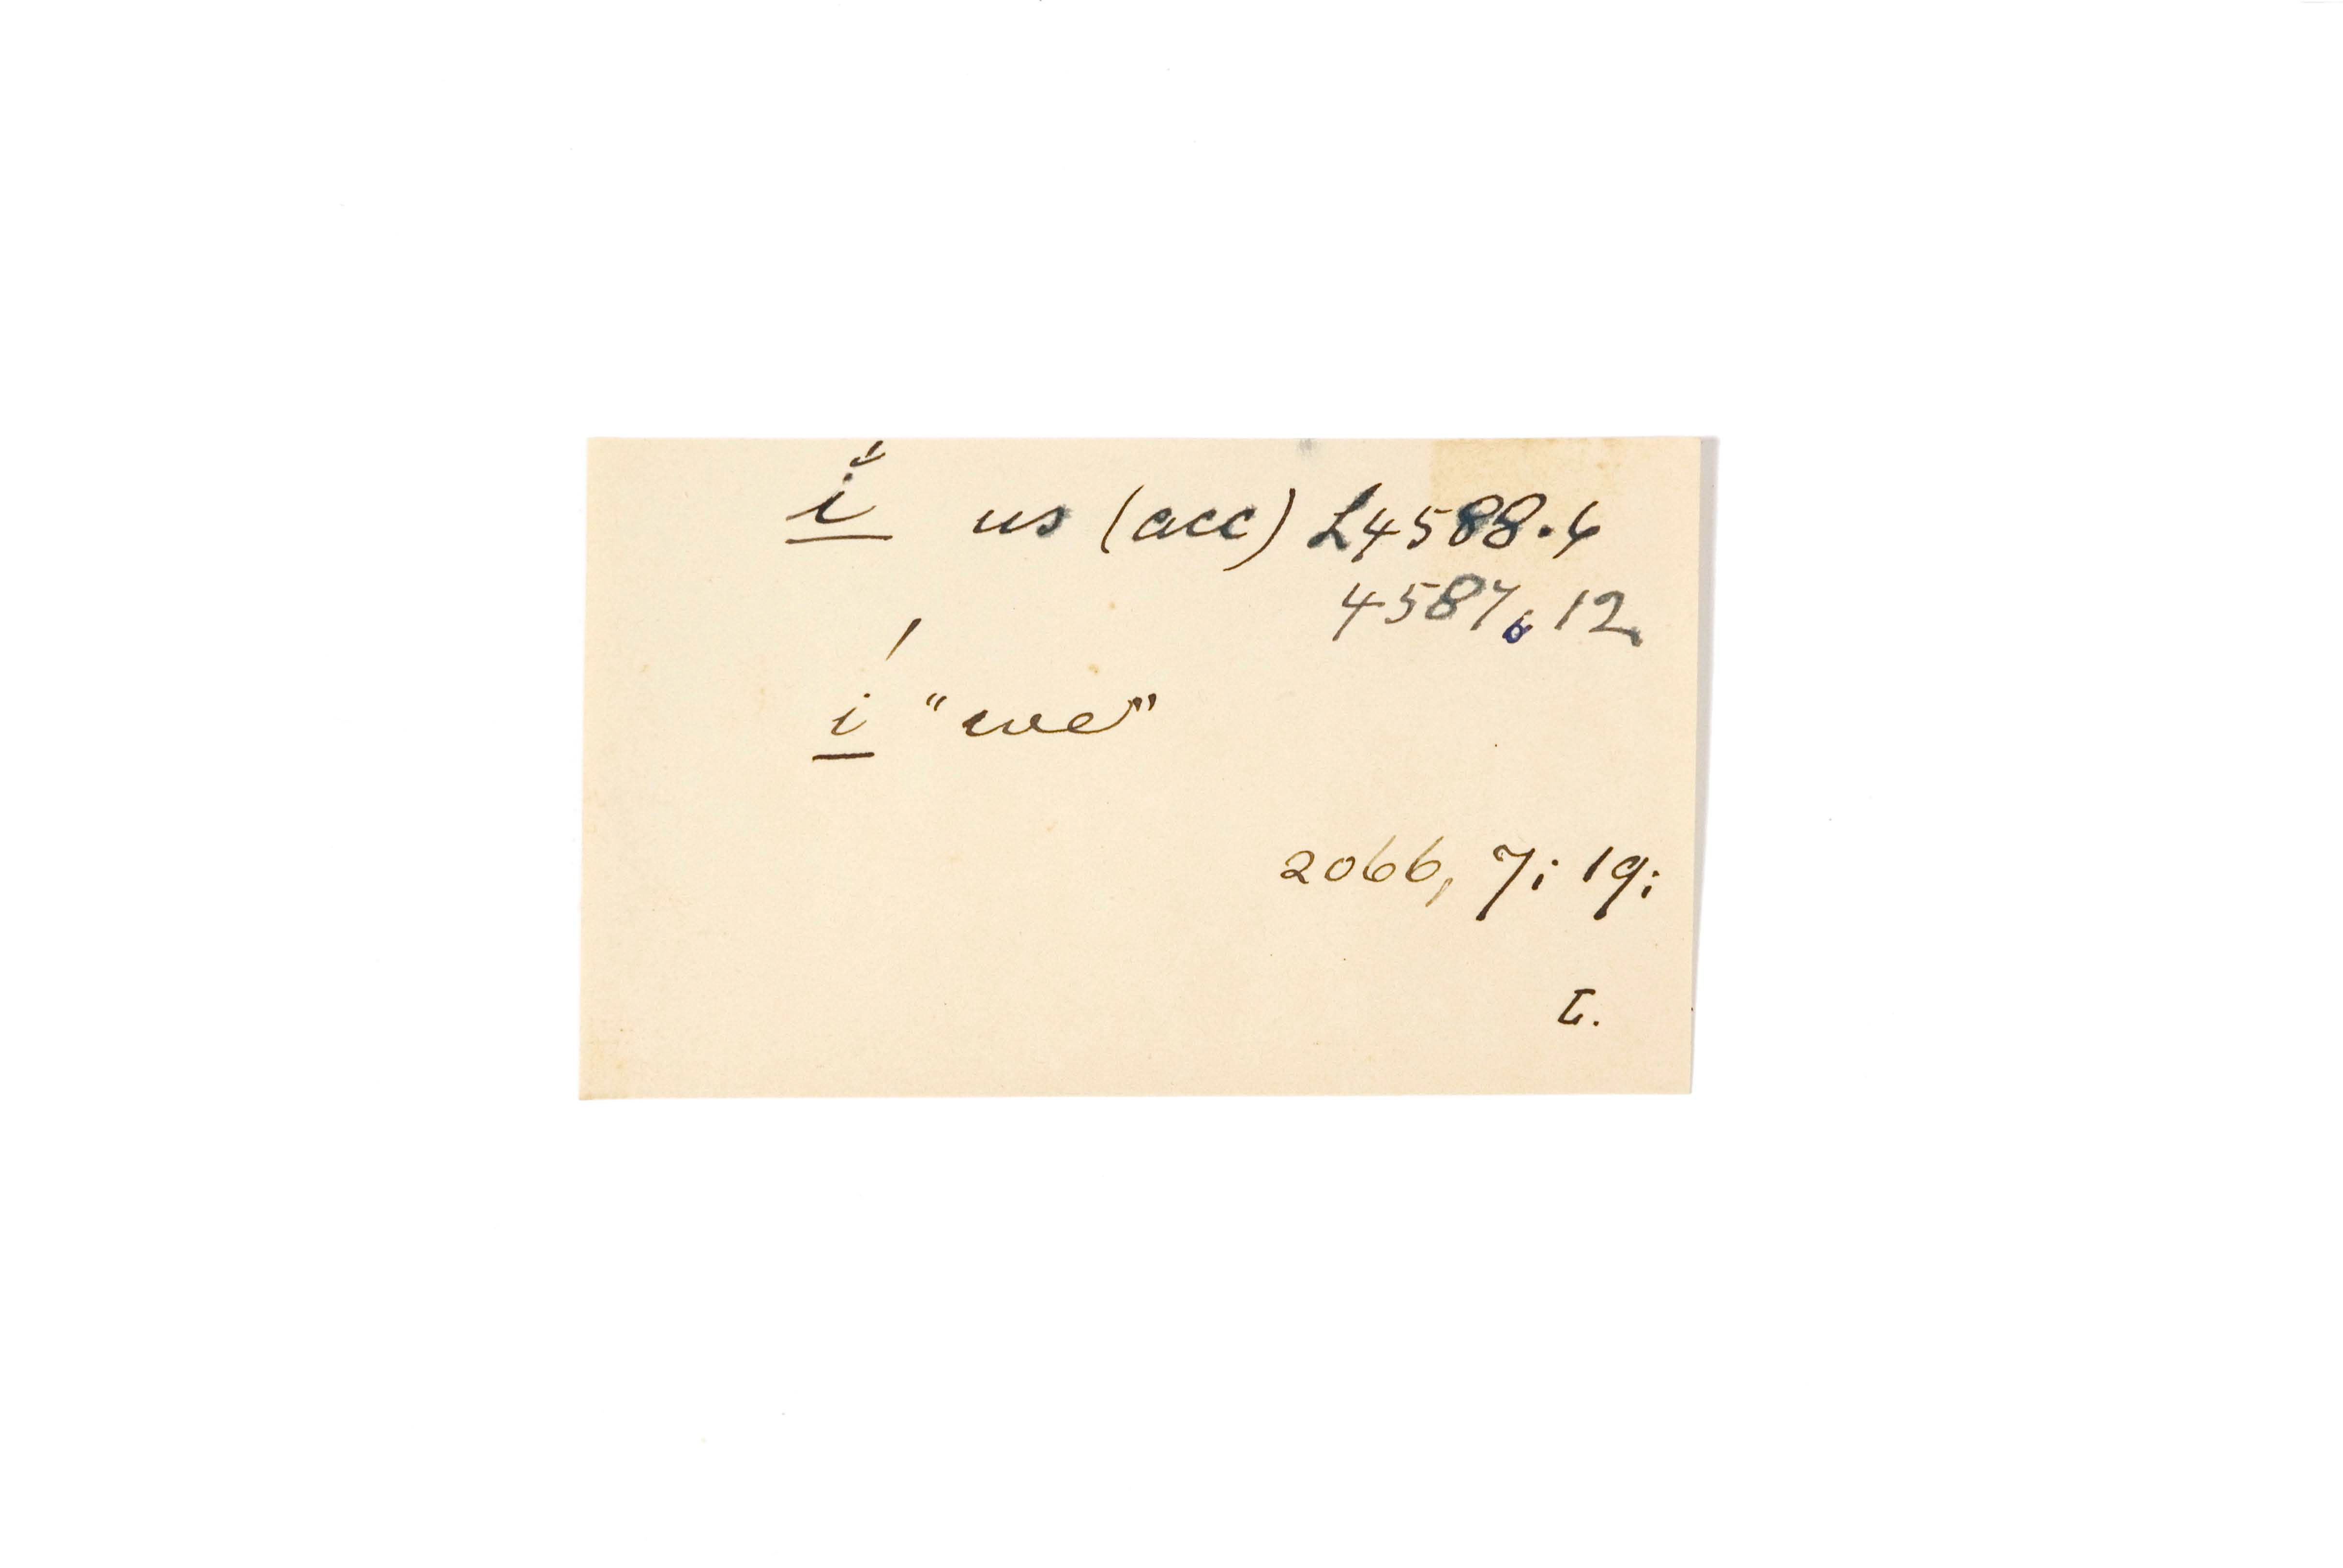 í us (acc) L4588.6
4587,6 12
í "we"
2066, 7; 19;
L.